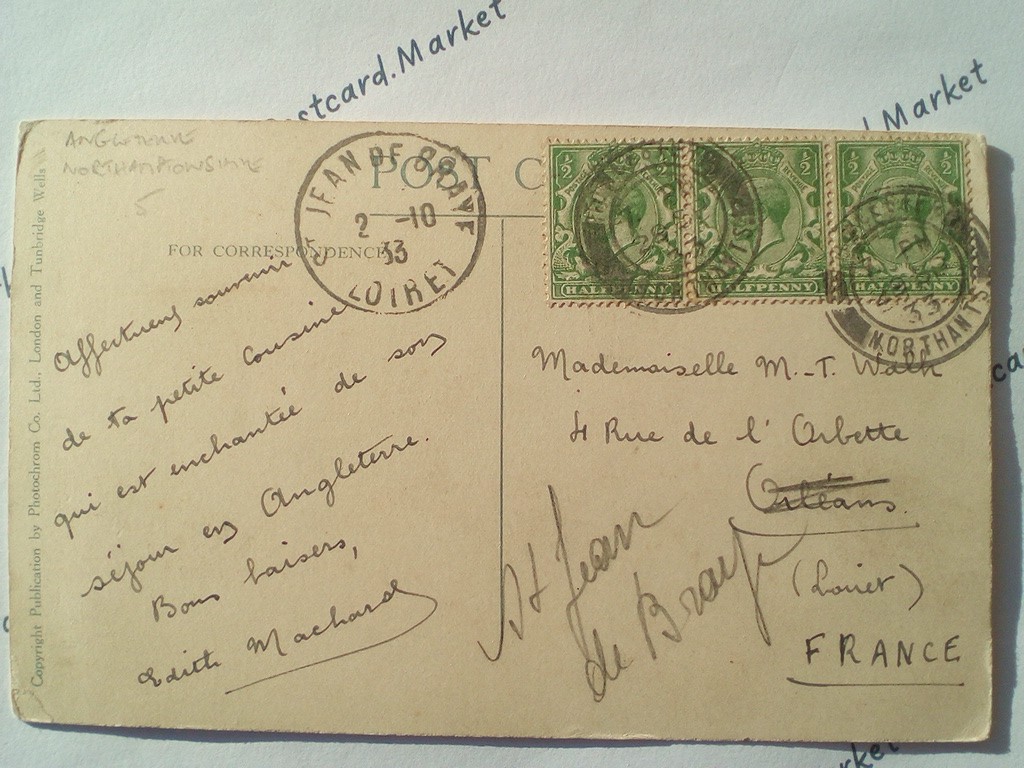 Postcard.Market
Market
ANGLETERRE
NORTHAMPTONSHIRE
5
POST C
FOR CORRESPONDENCE
ST JEAN DE BRAYE
2 -10
33
LOIRET
½ ½
½ ½
½ ½
HALFPENNY
HALFPENNY
HALFPENNY
33
NORTHANTS
Copyright Publication by Photochrom Co. Ltd., London and Tunbridge Wells
Affectueux souvenir
de ta petite cousine
qui est enchantée de son
séjour en Angleterre.
Bons baisers,
Edith Machard
Mademoiselle M.-T.
4 Rue de l'Orbette
Orléans.
St Jean
de Braye
(Loiret)
FRANCE